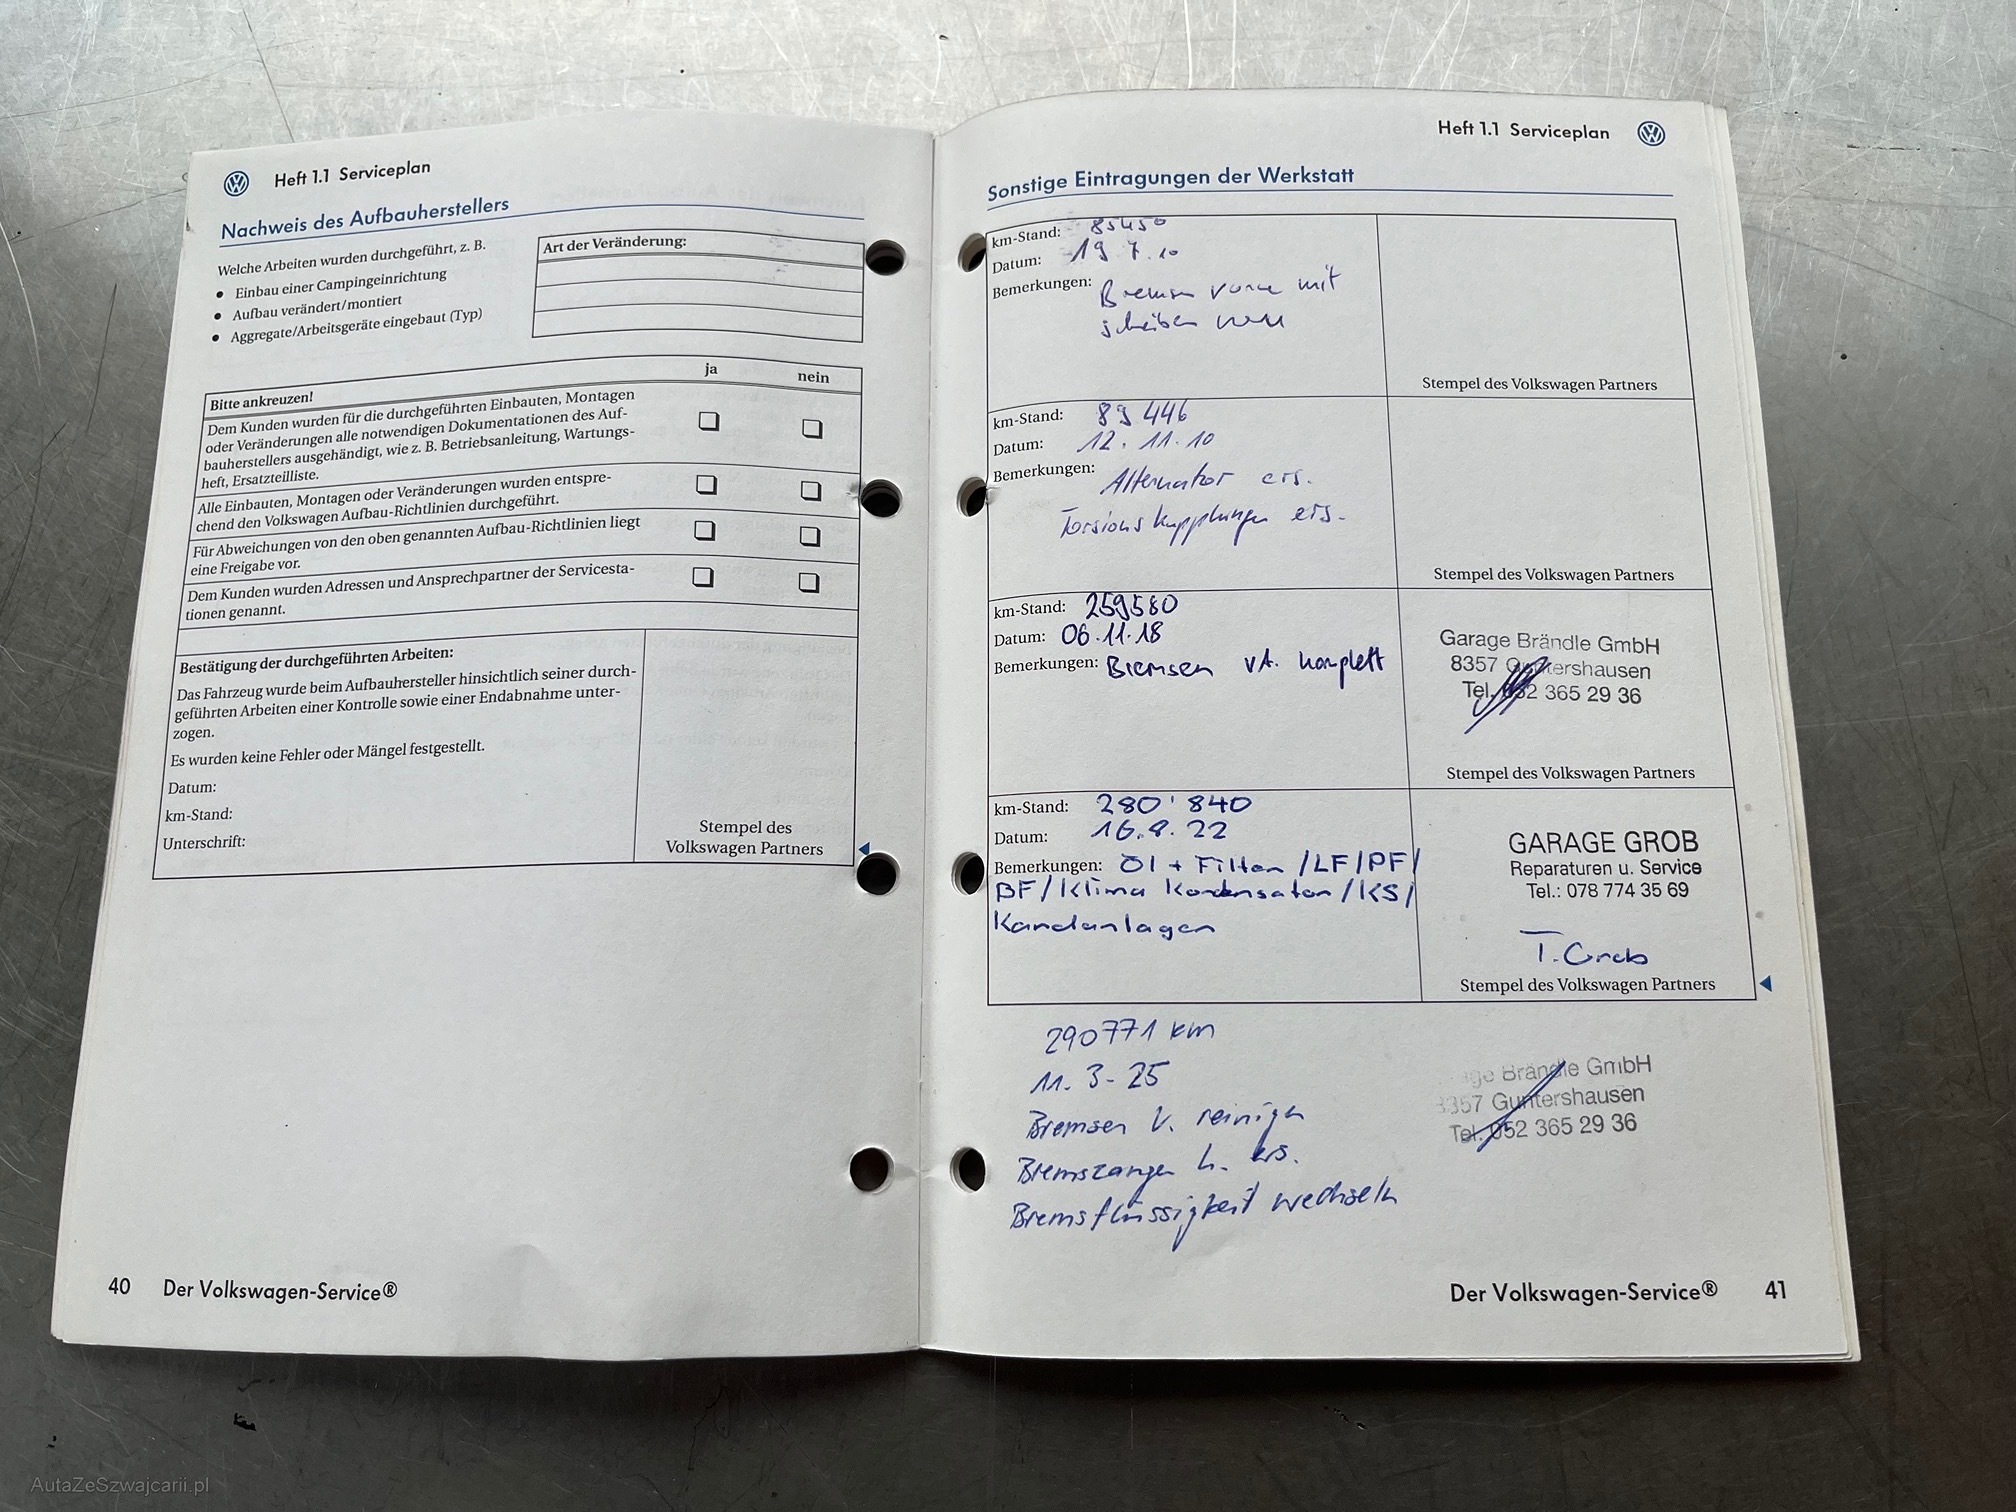 Heft 1.1 Serviceplan
Nachweis des Aufbauherstellers
Welche Arbeiten wurden durchgeführt, z. B.
• Einbau einer Campingeinrichtung
• Aufbau verändert/montiert
• Aggregate/Arbeitsgeräte eingebaut (Typ)
Art der Veränderung:
Bitte ankreuzen!
ja
nein
Dem Kunden wurden für die durchgeführten Einbauten, Montagen
oder Veränderungen alle notwendigen Dokumentationen des Auf-
bauherstellers ausgehändigt, wie z. B. Betriebsanleitung, Wartungs-
heft, Ersatzteilliste.
Alle Einbauten, Montagen oder Veränderungen wurden entspre-
chend den Volkswagen Aufbau-Richtlinien durchgeführt.
Für Abweichungen von den oben genannten Aufbau-Richtlinien liegt
eine Freigabe vor.
Dem Kunden wurden Adressen und Ansprechpartner der Servicesta-
tionen genannt.
Bestätigung der durchgeführten Arbeiten:
Das Fahrzeug wurde beim Aufbauhersteller hinsichtlich seiner durch-
geführten Arbeiten einer Kontrolle sowie einer Endabnahme unter-
zogen.
Es wurden keine Fehler oder Mängel festgestellt.
Datum:
km-Stand:
Unterschrift:
Stempel des
Volkswagen Partners
40 Der Volkswagen-Service®
Heft 1.1 Serviceplan
Sonstige Eintragungen der Werkstatt
km-Stand: 85450
Datum: 19.7.10
Bemerkungen: Bremsen vorne mit
scheiben neu
Stempel des Volkswagen Partners
km-Stand: 89446
Datum: 12.11.10
Bemerkungen: Alternator ers.
Torsionskupplungen ers.
Stempel des Volkswagen Partners
km-Stand: 259580
Datum: 06.11.18
Bemerkungen: Bremsen VA. komplett
Garage Brändle GmbH
8357 Guntershausen
Tel. 052 365 29 36
Stempel des Volkswagen Partners
km-Stand: 280'840
Datum: 16.8.22
Bemerkungen: Öl + Filter /LF/PF/
BF/Klima Kondensator/KS/
GARAGE GROB
Reparaturen u. Service
Tel.: 078 774 35 69
T. Grob
Stempel des Volkswagen Partners
290771 km
11.3-25
Bremsen V. reinigen
Bremszangen h. ers.
Bremsflüssigkeit wechseln
Garage Brändle GmbH
8357 Guntershausen
Tel. 052 365 29 36
Der Volkswagen-Service® 41
AutaZeSzwajcarii.pl